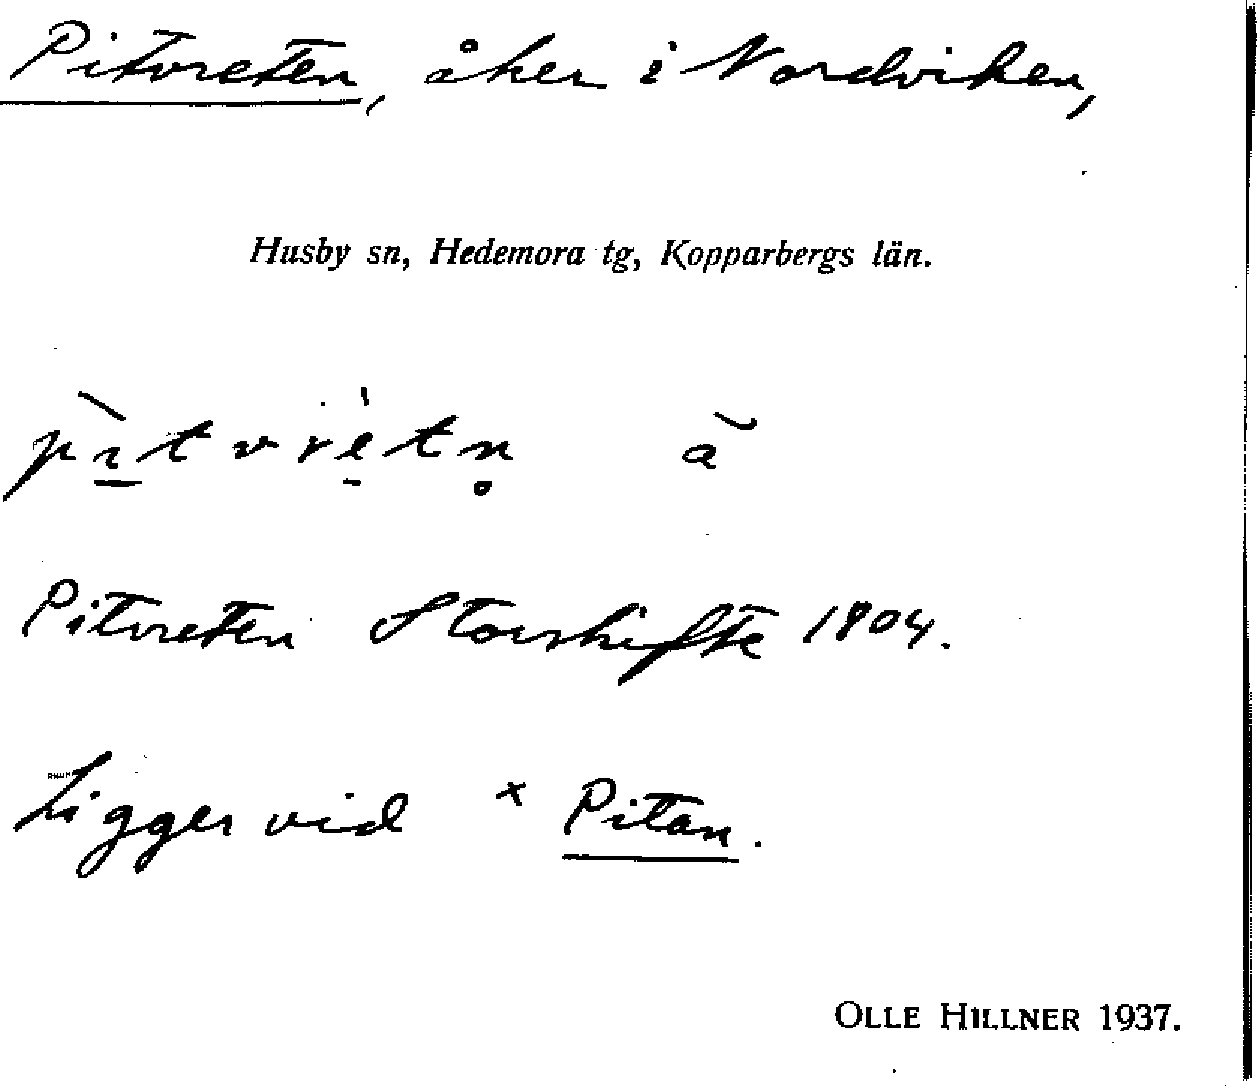 Pitvreten, åker i Nordviken,
Husby sn, Hedemora tg, Kopparbergs län.
pı̀tvrètn̥ ã
Pitvreten Storskifte 1804.
Ligger vid × Pitan.
OLLE HILLNER 1937.